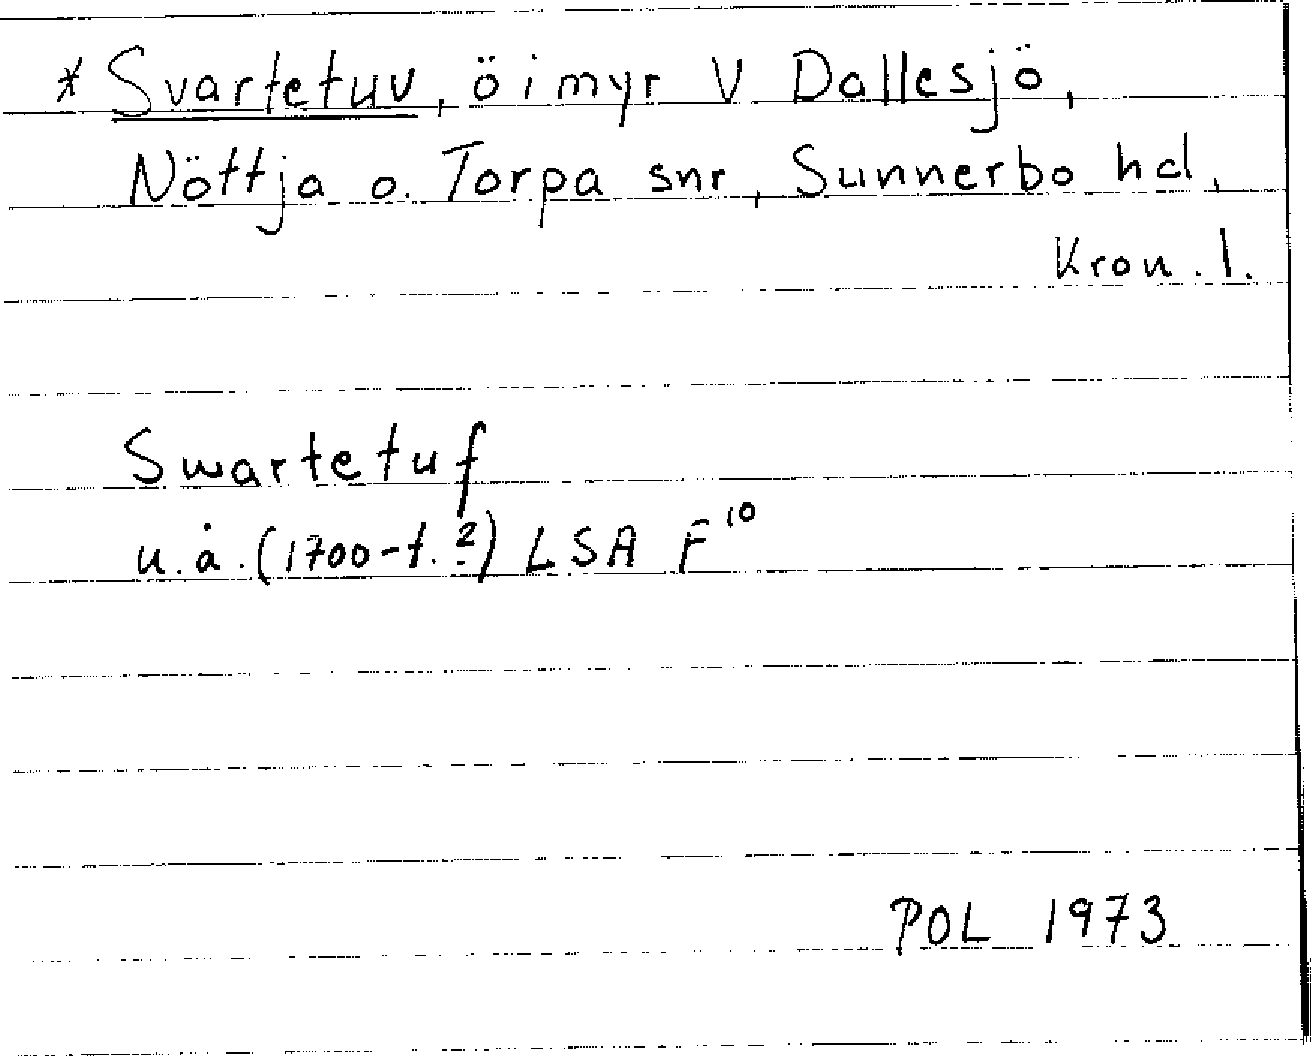 * Svartetuv, ö i myr V Dallesjö,
Nöttja o. Torpa snr, Sunnerbo hd,
Kron. l.
Swartetuf
u. å. (1700-t. ?) LSA F¹⁰
POL 1973